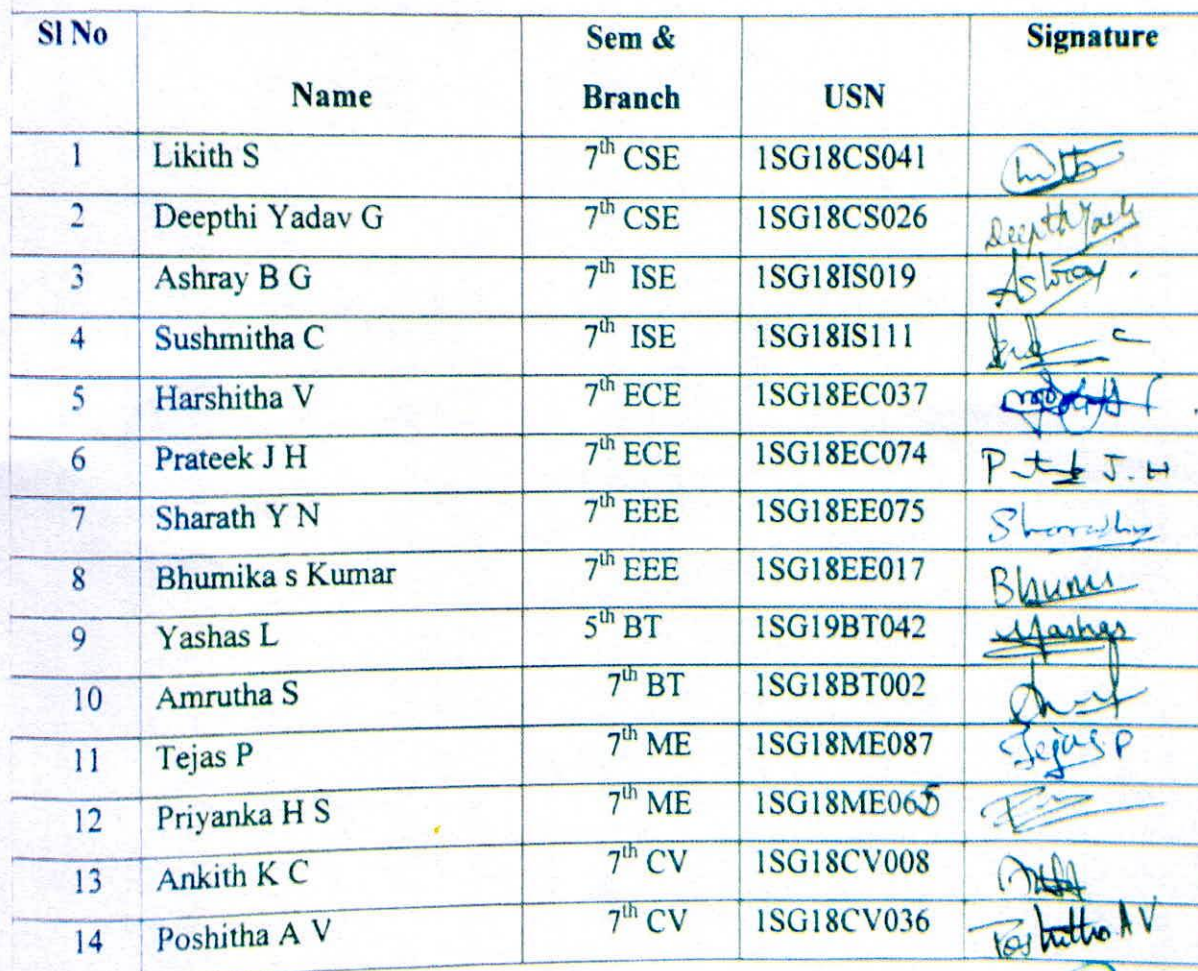 Sl No Name Sem & Branch USN Signature
1 Likith S 7th CSE 1SG18CS041
2 Deepthi Yadav G 7th CSE 1SG18CS026
3 Ashray B G 7th ISE 1SG18IS019 Ashray .
4 Sushmitha C 7th ISE 1SG18IS111
5 Harshitha V 7th ECE 1SG18EC037
6 Prateek J H 7th ECE 1SG18EC074 J.H
7 Sharath Y N 7th EEE 1SG18EE075
8 Bhumika s Kumar 7th EEE 1SG18EE017
9 Yashas L 5th BT 1SG19BT042 Yashas
10 Amrutha S 7th BT 1SG18BT002
11 Tejas P 7th ME 1SG18ME087 Tejas P
12 Priyanka H S 7th ME 1SG18ME065
13 Ankith K C 7th CV 1SG18CV008
14 Poshitha A V 7th CV 1SG18CV036 Poshitha A V